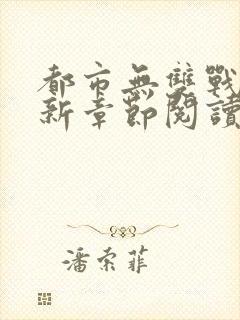 都市無雙戰
新章節閱讀
潘索菲